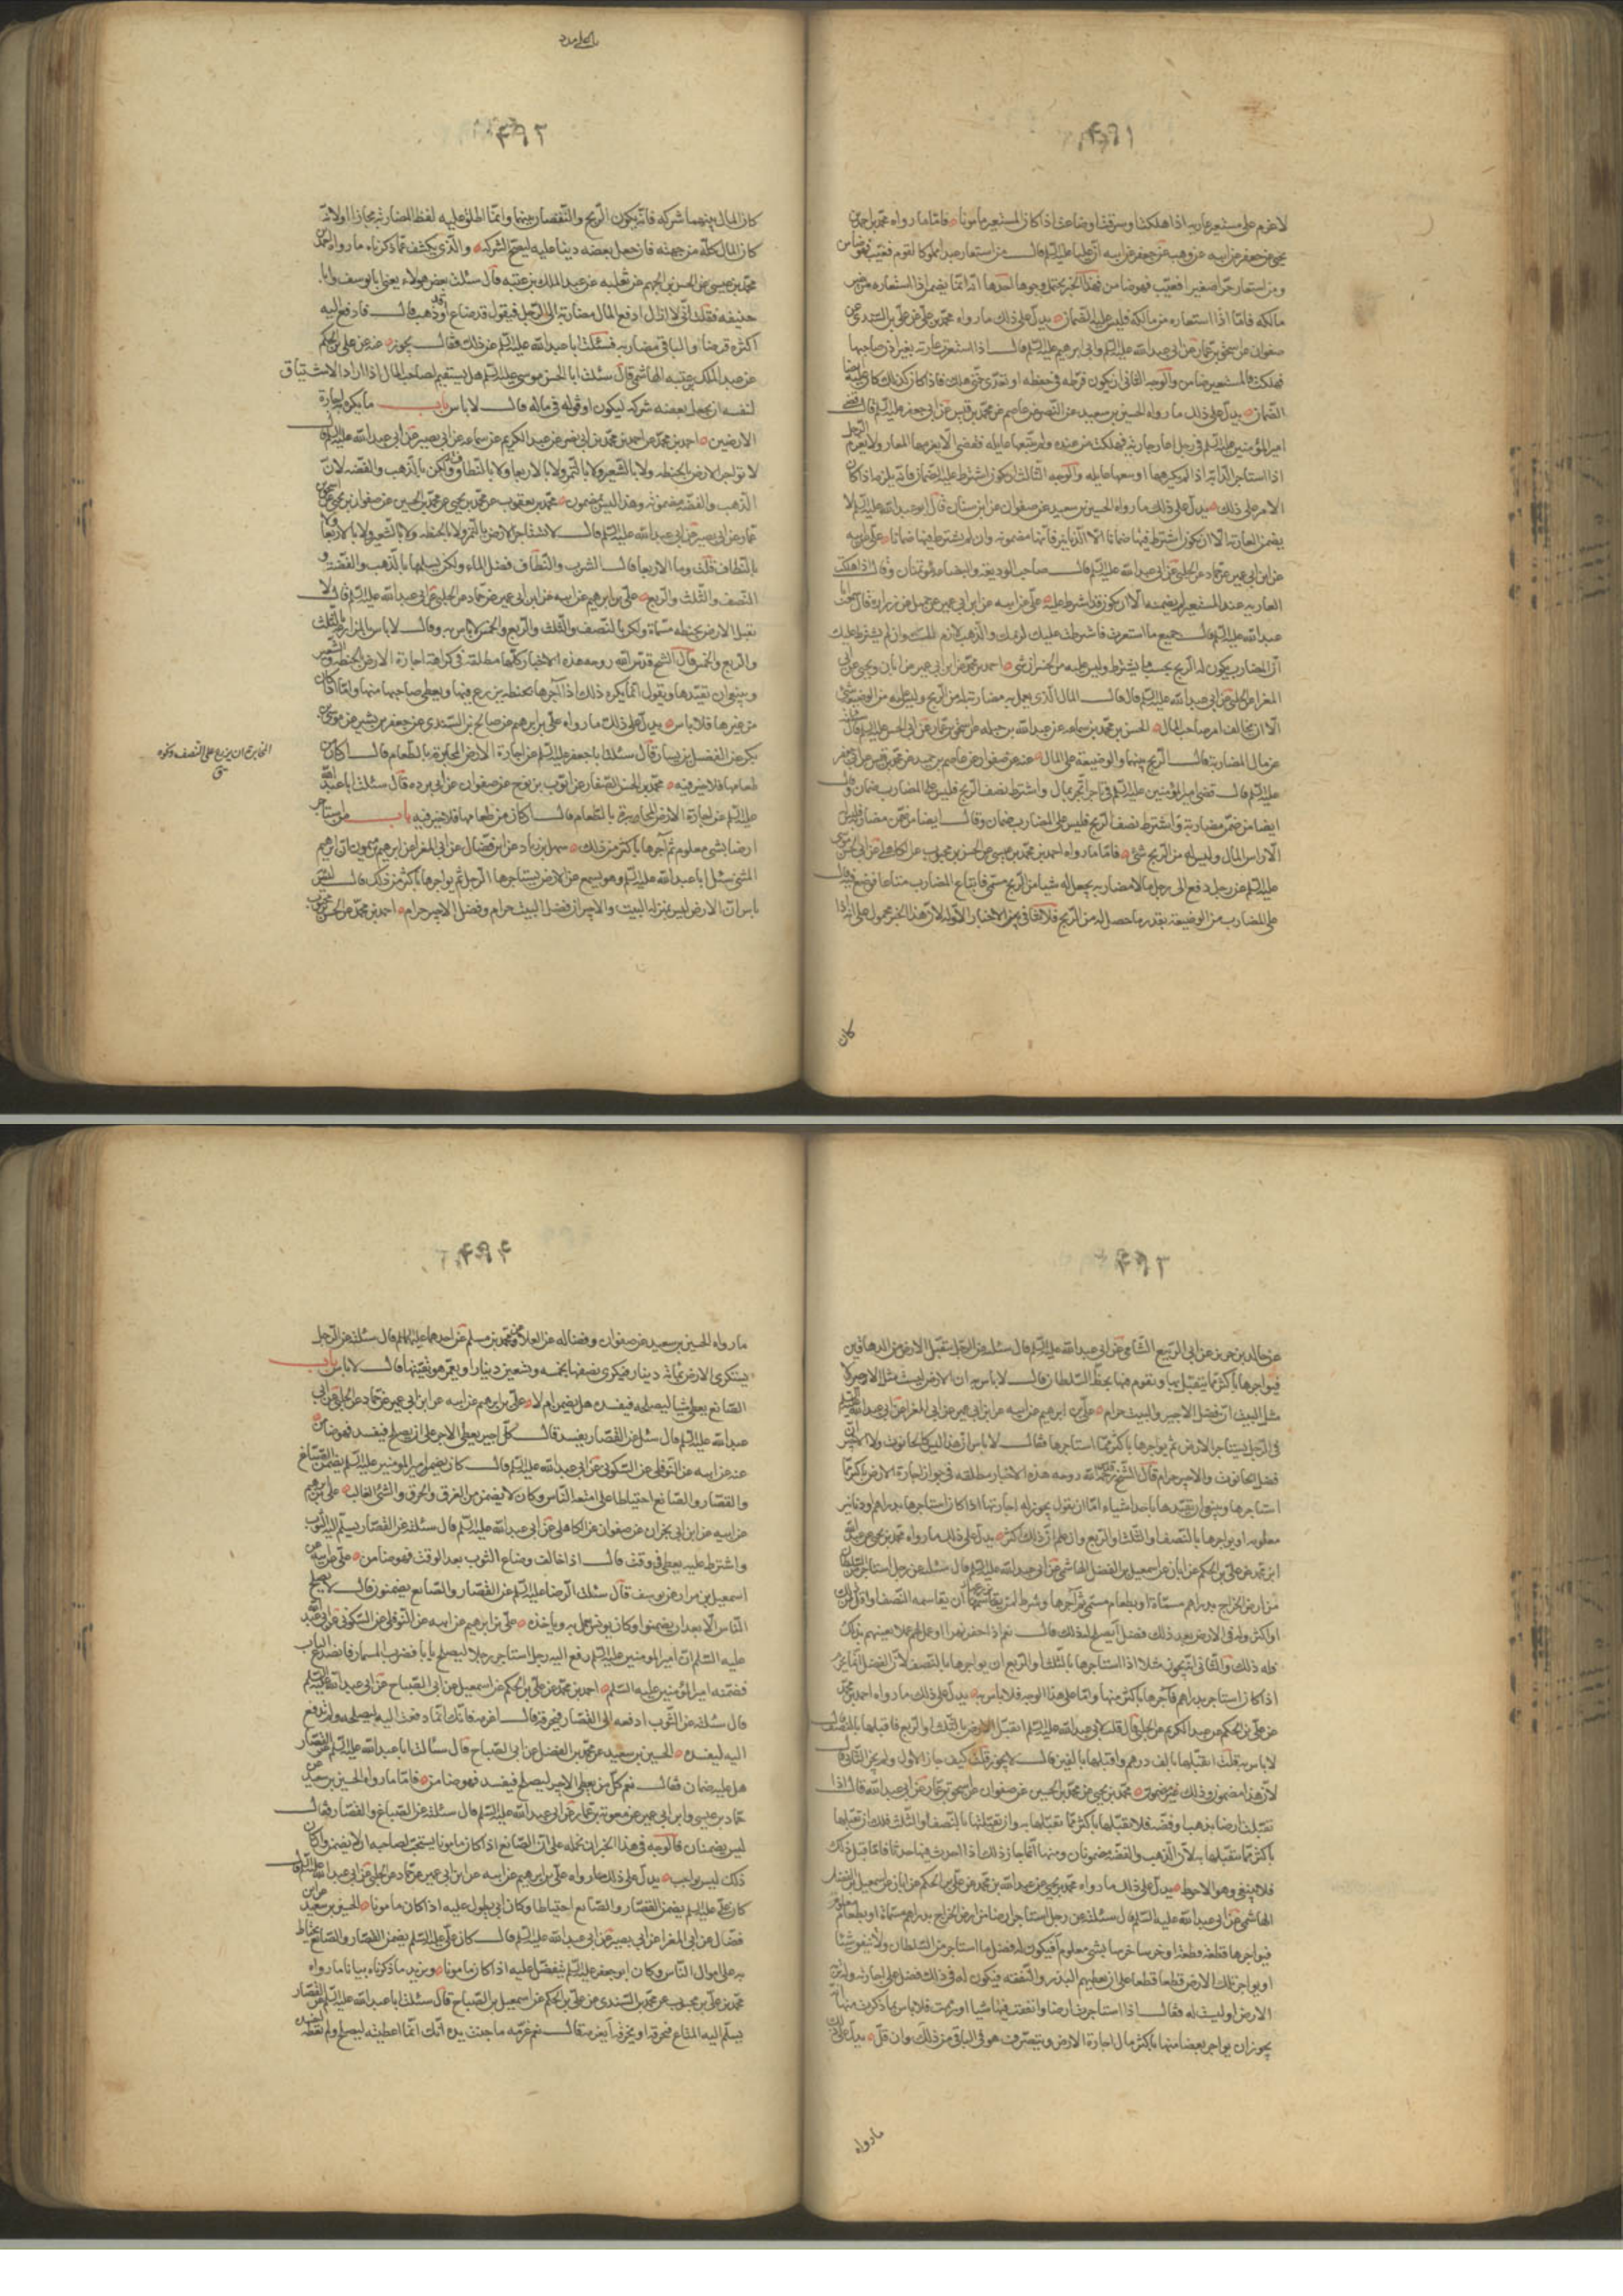 ٤٩١
لا غرم على مستعير عارية اذا هلكت او سرقت او ضاعت اذا كان المستعير مأمونا فاما ما رواه محمد بن احمد بن
يحيى عن جعفر عن ابيه عن وهب عن جعفر عن ابيه ان عليا عليه السلم قال من استعار عبدا مملوكا لقوم فعيب فهو ضامن
ومن استعار حرا صغيرا فعيب فهو ضامن فهذا الخبر يحتمل وجوها احدها انه انما يضمن اذا استعاره من غير
مالكه فاما اذا استعاره من مالكه فليس عليه الضمان يدل على ذلك ما رواه محمد بن علي بن السندي عن
صفوان عن اسحق بن عمار عن ابي عبد الله عليه السلم وابي ابرهيم عليه السلم قال اذا استعيرت عارية بغير اذن صاحبها
فهلكت فالمستعير ضامن والوجه الثاني ان يكون فرط في حفظه او تعدى حتى هلك فاذا كان كذلك كان عليه ايضا
الضمان يدل على ذلك ما رواه الحسين بن سعيد عن النضر عن عاصم عن محمد بن قيس عن ابي جعفر عليه السلم قال قضى
امير المؤمنين عليه السلم في رجل اعار جارية فهلكت من عنده ولم يبغها غايلة فقضى ان لا يغرمها المعار ولا يغرم الرجل
اذا استاجر الدابة اذا لم يكرهها او يبغها غايلة والوجه الثالث ان يكون اشترط عليه الضمان فانه يلزمه اذا كان
الامر على ذلك يدل على ذلك ما رواه الحسين بن سعيد عن صفوان عن ابن سنان قال قال ابو عبد الله عليه السلم لا
يضمن العارية الا ان يكون اشترط فيها ضمانا الا الدنانير فانها مضمونة وان لم يشترط فيها ضمانا علي عن ابيه
عن ابن ابي عمير عن حماد عن الحلبي عن ابي عبد الله عليه السلم قال صاحب الوديعة والبضاعة مؤتمنان وقال اذا هلكت
العارية عند المستعير لم يضمنه الا ان يكون قد اشترط عليه علي عن ابيه عن ابن ابي عمير عن جميل عن زرارة قال سمعت ابا
عبد الله عليه السلم قال جميع ما استعرت فاشترطت عليك لزمك والذهب لازم لك وان لم يشترط عليك
ان المضارب يكون له الربح بحسب ما يشترط وليس عليه من الخسران شئ احمد بن محمد عن ابن ابي عمير عن ابان ويحيى عن ابي
المغرا عن الحلبي عن ابي عبد الله عليه السلم قال قال المال الذي يعمل به مضاربة له من الربح وليس عليه من الوضيعة شئ
الا ان يخالف امر صاحب المال الحسن بن محمد بن سماعة عن عبد الله بن جبلة عن اسحق بن عمار عن ابي الحسن عليه السلم قال سالته
عن مال المضاربة قال الربح بينهما والوضيعة على المال عنه عن صفوان عن عاصم بن حميد عن محمد بن قيس عن ابي جعفر
عليه السلم قال قضى امير المؤمنين عليه السلم في تاجر اتجر بمال واشترط نصف الربح فليس على المضارب ضمان وقال
ايضا من ضمن مضاربه واشترط نصف الربح فليس على المضارب ضمان وقال ايضا من ضمن مضاربه فليس له
الا راس المال وليس له من الربح شئ فاما ما رواه احمد بن محمد بن عيسى عن الحسن بن محبوب عن الكاهلي عن ابي الحسن موسى
عليه السلم عن رجل دفع الى رجل مالا مضاربة فجعل له شيئا من الربح مسمى فابتاع المضارب متاعا فوضع فيه قال
على المضارب من الوضيعة بقدر ما حصل له من الربح فلا ينافي الاخبار الاولة لان هذا الخبر محمول على انه اذا
كان
٤٩٢
كان المال بينهما شركة فانه يكون الربح والنقصان بينهما وانما اطلق عليه لفظ المضاربة مجازا او لانه
كان المال كله من جهته فان جعل بعضه دينا عليه ليصح الشركة والذي يكشف عما ذكرناه ما رواه احمد بن
محمد بن عيسى عن الحسن بن الجهم عن ثعلبة عن عبد الملك بن عتبة قال سئلت بعض هؤلاء يعني ابا يوسف وابا
حنيفة فقلت اني لا ازال ادفع المال مضاربة الى الرجل فيقول قد ضاع او قد ذهب قال فادفع اليه
اكثره قرضا والباقي مضاربة فسئلت ابا عبد الله عليه السلم عن ذلك فقال يجوز عنه عن علي بن الحكم
عن عبد الملك بن عتبة الهاشمي قال سئلت ابا الحسن موسى عليه السلم هل يستقيم لصاحب المال اذا اراد الاستيثاق
لنفسه ان يجعل بعضه شركة ليكون اوثق له في ماله قال لا باس باب ما يكره اجارة
الارضين احمد بن محمد عن احمد بن محمد بن ابي نصر عن عبد الكريم عن سماعة عن ابي بصير عن ابي عبد الله عليه السلم قال
لا تؤاجر الارض بالحنطة ولا بالشعير ولا بالتمر ولا بالاربعا ولا بالنطاف ولكن بالذهب والفضة لان
الذهب والفضة مضمونة وهذا ليس بمضمون محمد بن يعقوب عن محمد بن يحيى عن محمد بن الحسين عن صفوان بن يحيى عن اسحق بن
عمار عن ابي بصير عن ابي عبد الله عليه السلم قال لا تستاجر الارض بالتمر ولا بالحنطة ولا بالشعير ولا بالاربعا ولا
بالنطاف قلت وما الاربعا قال الشرب والنطاف فضل الماء ولكن تسلمها بالذهب والفضة و
النصف والثلث والربع علي بن ابرهيم عن ابيه عن ابن ابي عمير عن حماد عن الحلبي عن ابي عبد الله عليه السلم قال لا
تقبل الارض بحنطة مسماة ولكن بالنصف والثلث والربع والخمس لا باس به وقال لا باس بالمزارعة بالثلث
والربع والخمس قال الشيخ قدس الله روحه هذه الاخبار كلها مطلقة في كراهة اجارة الارض بالحنطة والشعير
وينبغي ان نقيدها ونقول انما يكره ذلك اذا آجرها بحنطة يزرع فيها ويعطي صاحبها منها واما اذا كان
من غيرها فلا باس يدل على ذلك ما رواه علي بن ابرهيم عن صالح بن السندي عن جعفر بن بشير عن موسى بن
بكر عن الفضيل بن يسار قال سئلت ابا جعفر عليه السلم عن اجارة الارض المخابرة بالطعام قال ان كان من
طعامها فلا خير فيه محمد بن الحسن الصفار عن ايوب بن نوح عن صفوان عن ابي بردة قال سئلت ابا عبد الله
عليه السلم عن اجارة الارض المخابرة بالطعام قال ان كان من طعامها فلا خير فيه باب من استاجر
ارضا بشئ معلوم ثم آجرها باكثر من ذلك سهل بن زياد عن ابن فضال عن ابي المغرا عن ابرهيم بن ميمون ان ابرهيم
المثنى سئل ابا عبد الله عليه السلم وهو يسمع عن الارض يستاجرها الرجل ثم يواجرها باكثر من ذلك قال ليس به
باس ان الارض ليس بمنزلة البيت والاجير ان فضل البيت حرام وفضل الاجير حرام احمد بن محمد عن الحسن بن محبوب
المخابرة ان يزرع على النصف ونحوه
٤٩٣
عن خالد بن جرير عن ابي الربيع الشامي عن ابي عبد الله عليه السلم قال سئلته عن الرجل يتقبل الارض من الدهاقين
فيواجرها باكثر مما يتقبل بها ويقوم فيها بحظ السلطان قال لا باس به ان الارض ليست مثل الاجير ولا
مثل البيت ان فضل الاجير والبيت حرام علي بن ابرهيم عن ابيه عن ابن ابي عمير عن ابي المغرا عن ابي عبد الله عليه السلم
في الرجل يستاجر الارض ثم يواجرها باكثر مما استاجرها فقال لا باس ان هذا ليس كالحانوت ولا الاجير ان
فضل الحانوت والاجير حرام قال الشيخ قدس الله روحه هذه الاخبار مطلقة في جواز اجارة الارض باكثر مما
استاجرها وينبغي ان نقيدها باحد اشياء اما ان نقول يجوز له اجارتها اذا كان استاجرها بدراهم ودنانير
معلومة او يواجرها بالنصف او الثلث او الربع وان علم ان ذلك اكثر يدل على ذلك ما رواه محمد بن يحيى عن عبد الله
ابن محمد عن علي بن الحكم عن ابان عن اسمعيل بن الفضل الهاشمي عن ابي عبد الله عليه السلم قال سئلته عن رجل استاجر من السلطان
من ارض الخراج بدراهم مسماة او بطعام مسمى ثم آجرها وشرط لمن يزرعها ان يقاسمه النصف او اقل من ذلك
او اكثر وله في الارض بعد ذلك فضل ايصلح له ذلك قال نعم اذا حفر نهرا او عمل لهم عملا يعينهم بذلك
فله ذلك والثاني انه يجوز مثلا اذا استاجرها بالثلث او الربع ان يواجرها بالنصف لان الفضل انما يحرم
اذا كان استاجر بدراهم فآجرها باكثر منها واما على هذا الوجه فلا باس يدل على ذلك ما رواه احمد بن محمد
عن علي بن الحكم عن عبد الكريم عن الحلبي قال قلت لابي عبد الله عليه السلم اتقبل الارض بالثلث او الربع فاقبلها بالنصف قال
لا باس به قلت اتقبلها بالف درهم واقبلها بالفين قال لا يجوز قلت كيف جاز الاول ولم يجز الثاني قال
لان هذا مضمون وذلك غير مضمون محمد بن يحيى عن محمد بن الحسين عن صفوان عن اسحق بن عمار عن ابي عبد الله قال اذا
تقبلت ارضا بذهب او فضة فلا تقبلها باكثر مما تقبلتها به وان تقبلتها بالنصف والثلث فلك ان تقبلها
باكثر مما تقبلتها به لان الذهب والفضة مضمونان ومنها انما جاز ذلك اذا احدث فيها حدثا فاما قبل ذلك
فلا ينبغي وهو الاحوط يدل على ذلك ما رواه محمد بن يحيى عن عبد الله بن محمد عن علي بن الحكم عن ابان عن اسمعيل بن الفضل
الهاشمي عن ابي عبد الله عليه السلم قال سئلته عن رجل استاجر ارضا من ارض الخراج بدراهم مسماة او بطعام معلوم
فيواجرها قطعة قطعة او جريبا جريبا بشئ معلوم فيكون له فضل ما استاجر من السلطان ولا ينفق شيئا
او يواجر تلك الارض قطعا قطعا على ان يعطيهم البذر والنفقة فيكون له في ذلك فضل على اجارته وله تربة
الارض او ليست له فقال اذا استاجرت ارضا وانفقت فيها شيئا او رممت فلا باس بما ذكرت ومنها انه
يجوز ان يواجر بعضا منها باكثر مال اجارة الارض ويتصرف هو في الباقي من ذلك وان قل يدل على ذلك
ما رواه
٤٩٤
ما رواه الحسين بن سعيد عن صفوان وفضالة عن العلا عن محمد بن مسلم عن احدهما عليهما السلم قال سئلته عن الرجل
يستكري الارض بمائة دينار فيكري نصفها بخمسة وتسعين دينارا ويعمر هو بقيتها قال لا باس باب
الصانع يعطى شيئا ليصلحه فيفسده هل يضمن ام لا علي بن ابرهيم عن ابيه عن ابن ابي عمير عن حماد عن الحلبي عن ابي
عبد الله عليه السلم قال سئل عن القصار يفسد قال كل اجير يعطى الاجر على ان يصلح فيفسد فهو ضامن
عنه عن ابيه عن النوفلي عن السكوني عن ابي عبد الله عليه السلم قال كان امير المؤمنين عليه السلم يضمن الصباغ
والقصار والصانع احتياطا على امتعة الناس وكان لا يضمن من الغرق والحرق والشئ الغالب علي بن ابرهيم
عن ابيه عن ابن ابي نجران عن صفوان عن الكاهلي عن ابي عبد الله عليه السلم قال سئلته عن القصار يسلم اليه الثوب
واشترط عليه يعطي في وقت قال اذا خالف وضاع الثوب بعد الوقت فهو ضامن علي عن ابيه عن
اسمعيل بن مرار عن يونس قال سئلت الرضا عليه السلم عن القصار والصانع يضمنون قال لا يصلح
الناس الا بعد ان يضمنوا وكان يونس يعمل به وياخذه علي بن ابرهيم عن ابيه عن النوفلي عن السكوني عن ابي عبد الله
عليه السلم ان امير المؤمنين عليه السلم رفع اليه رجل استاجر رجلا ليصلح بابا فضرب المسمار فانصدع الباب
فضمنه امير المؤمنين عليه السلم احمد بن محمد عن علي بن الحكم عن اسمعيل عن ابي الصباح عن ابي عبد الله عليه السلم
قال سئلته عن الثوب ادفعه الى القصار فيحرقه قال اغرمه فانك انما دفعته اليه ليصلحه ولم تدفع
اليه ليفسده الحسين بن سعيد عن محمد بن الفضيل عن ابي الصباح قال سالت ابا عبد الله عليه السلم عن القصار
هل عليه ضمان فقال نعم كل من يعطى الاجر ليصلح فيفسد فهو ضامن فاما ما رواه الحسين بن سعيد عن
حماد بن عيسى وابن ابي عمير عن معوية بن عمار عن ابي عبد الله عليه السلم قال سئلته عن الصباغ والقصار فقال
ليس يضمنان فالوجه في هذا الخبر ان نحمله على ان الصانع اذا كان مامونا يستحب لصاحبه ان لا يضمنه وان كان
ذلك ليس بواجب يدل على ذلك ما رواه علي بن ابرهيم عن ابيه عن ابن ابي عمير عن حماد عن الحلبي عن ابي عبد الله عليه السلم قال
كان علي عليه السلم يضمن القصار والصانع احتياطا وكان ابي يطول عليه اذا كان مامونا الحسين بن سعيد عن ابن
فضال عن ابي المغرا عن ابي بصير عن ابي عبد الله عليه السلم قال كان علي عليه السلم يضمن القصار والصانع يحتاط
به على اموال الناس وكان ابو جعفر عليه السلم يتفضل عليه اذا كان مامونا ويزيد ما ذكرناه بيانا ما رواه
محمد بن علي بن محبوب عن محمد بن السندي عن علي بن الحكم عن اسمعيل بن الصباح قال سئلت ابا عبد الله عليه السلم عن القصار
يسلم اليه المتاع فيحرقه او يخرقه ايغرمه قال نعم غرمه ما جنت يده انك انما اعطيته ليصلح ولم تعطه ليفسد